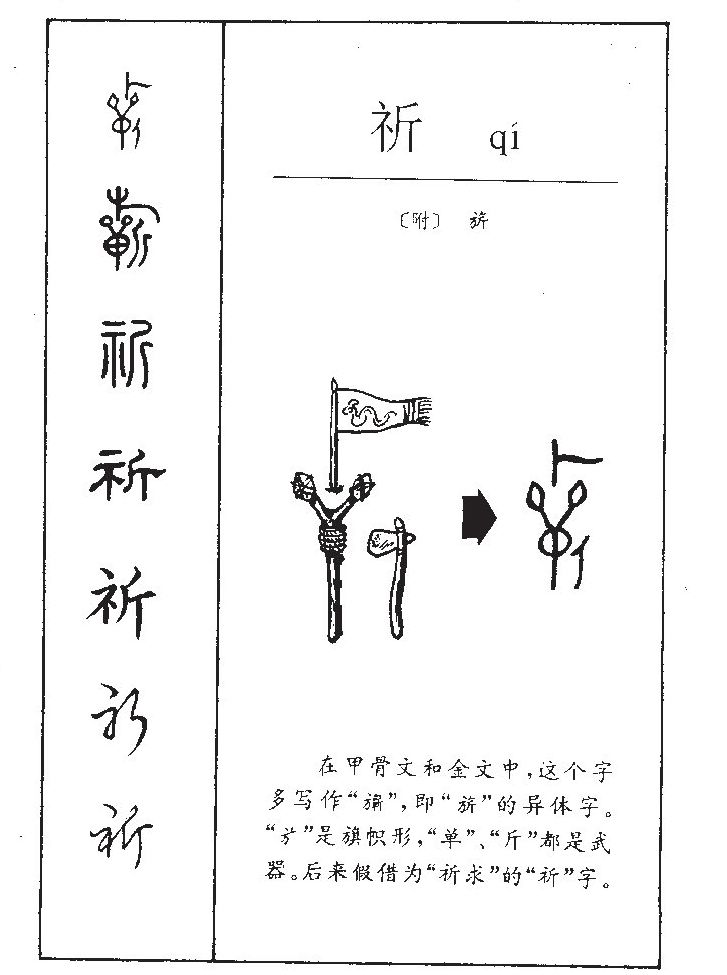 祈
祈
祈
祈
祈
祈 qí
〔附〕 旂
在甲骨文和金文中,这个字
多写作“”,即“旂”的异体字。
“㫃”是旗帜形,“单”、“斤”都是武
器。后来假借为“祈求”的“祈”字。